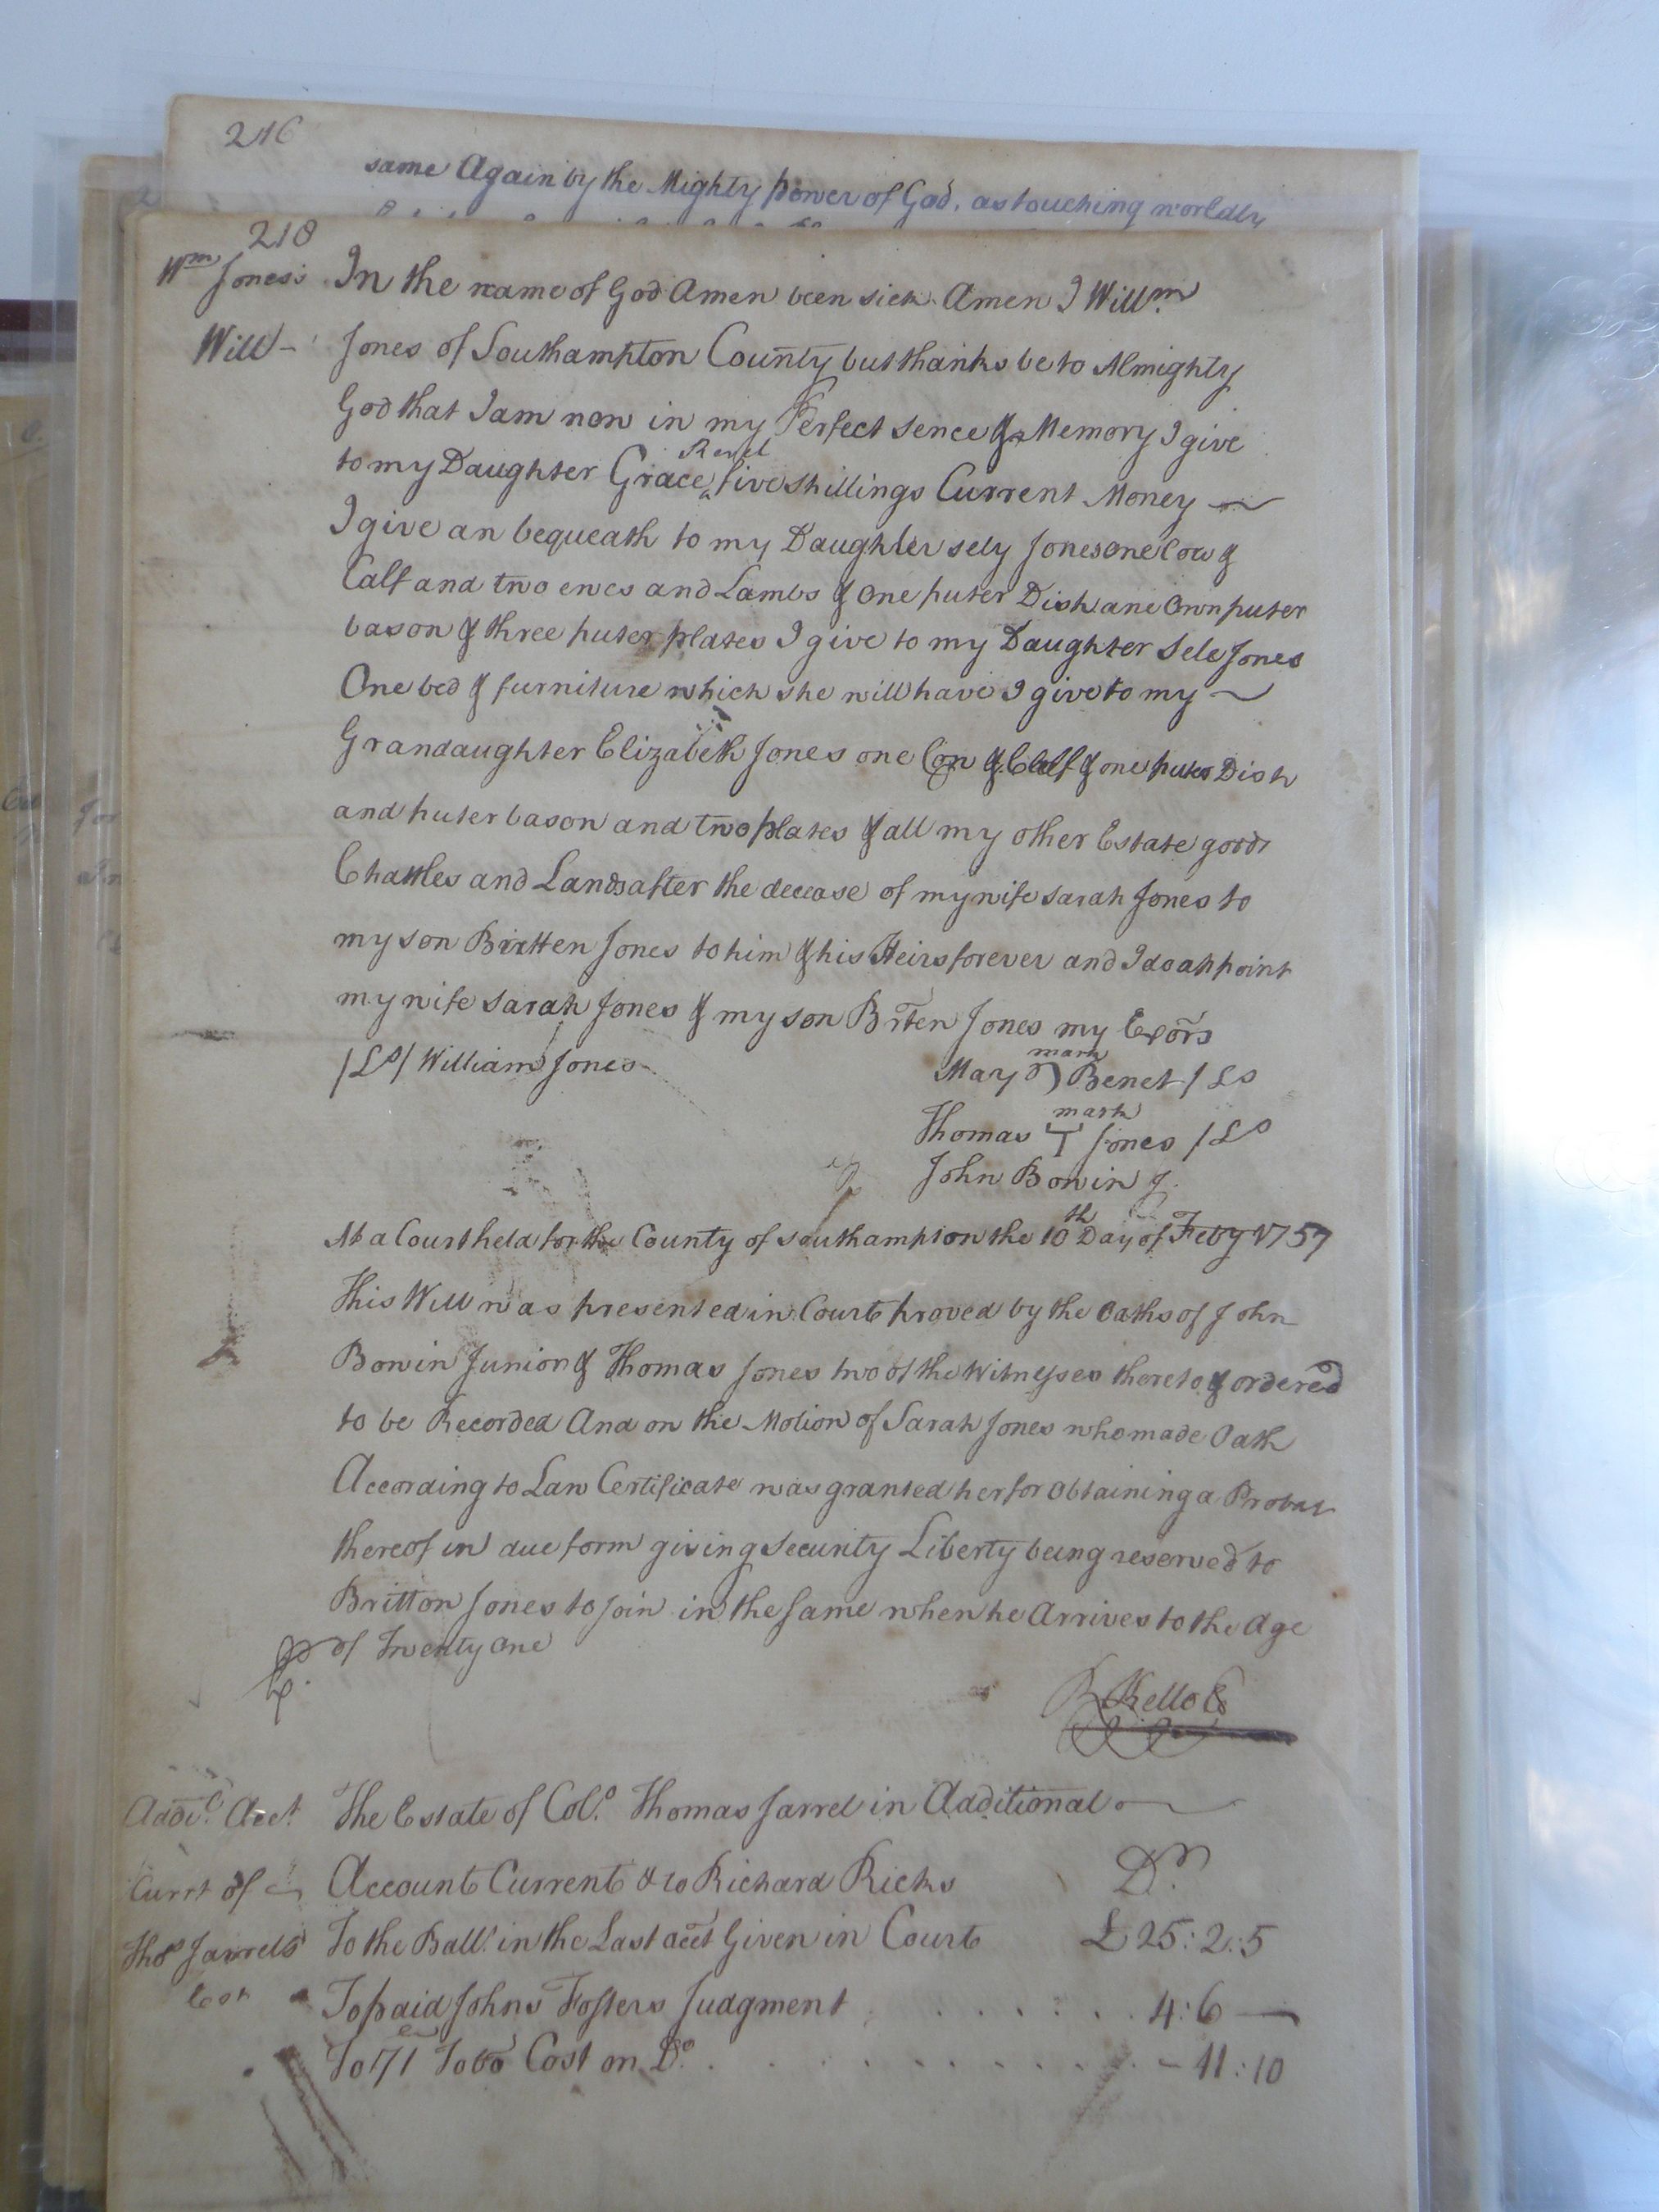 216
same Again by the Mighty power of God, as touching worldly
218
Wm Jones's
Will -
In the name of God Amen been sick Amen I Willm
Jones of Southampton County but thanks be to Almighty
God that I am now in my Perfect Sence & Memory I give
to my Daughter Grace ^ five shillings Current Money
I give an bequeath to my Daughter sely Jones one Cow &
Calf and two ewes and Lambs & one puter Dish ane Own puter
bason & three puter plates I give to my Daughter Sele Jones
One bed & furniture which she will have I give to my
Grandaughter Elizabeth Jones one Cow & Calf & one puter Dish
and puter bason and two plates & all my other Estate goods
Chattles and Lands after the decease of my wife Sarah Jones to
my son Britten Jones to him & his Heirs forever and I do appoint
my wife Sarah Jones & my son Briten Jones my Exors
/LS/ William Jones
mark
Mary Benet /LS
mark
Thomas T Jones /LS
John Bowin J.
At a Court held for the County of Southampton the 10th Day of Feby 1757
This Will was presented in Court proved by the Oaths of John
Bowin Junior & Thomas Jones two of the Witnesses thereto & ordered
to be Recorded And on the Motion of Sarah Jones who made Oath
According to Law Certificate was granted her for obtaining a Probat
thereof in due form giving Security Liberty being reserved to
Britton Jones to join in the same when he Arrives to the Age
of Twenty one
R Kello C
Addl. Acct.
Currt of
Thos Jarrels
Est
The Estate of Colo. Thomas Jarrel in Additional
Account Current & to Richard Ricks Dr.
To the Ball. in the Last acct Given in Court £ 25:2:5
To paid Johns Fosters Judgment . . . . . . 4:6 —
To 171 Tobo Cost on Do. . . . . . . . . . - 11:10